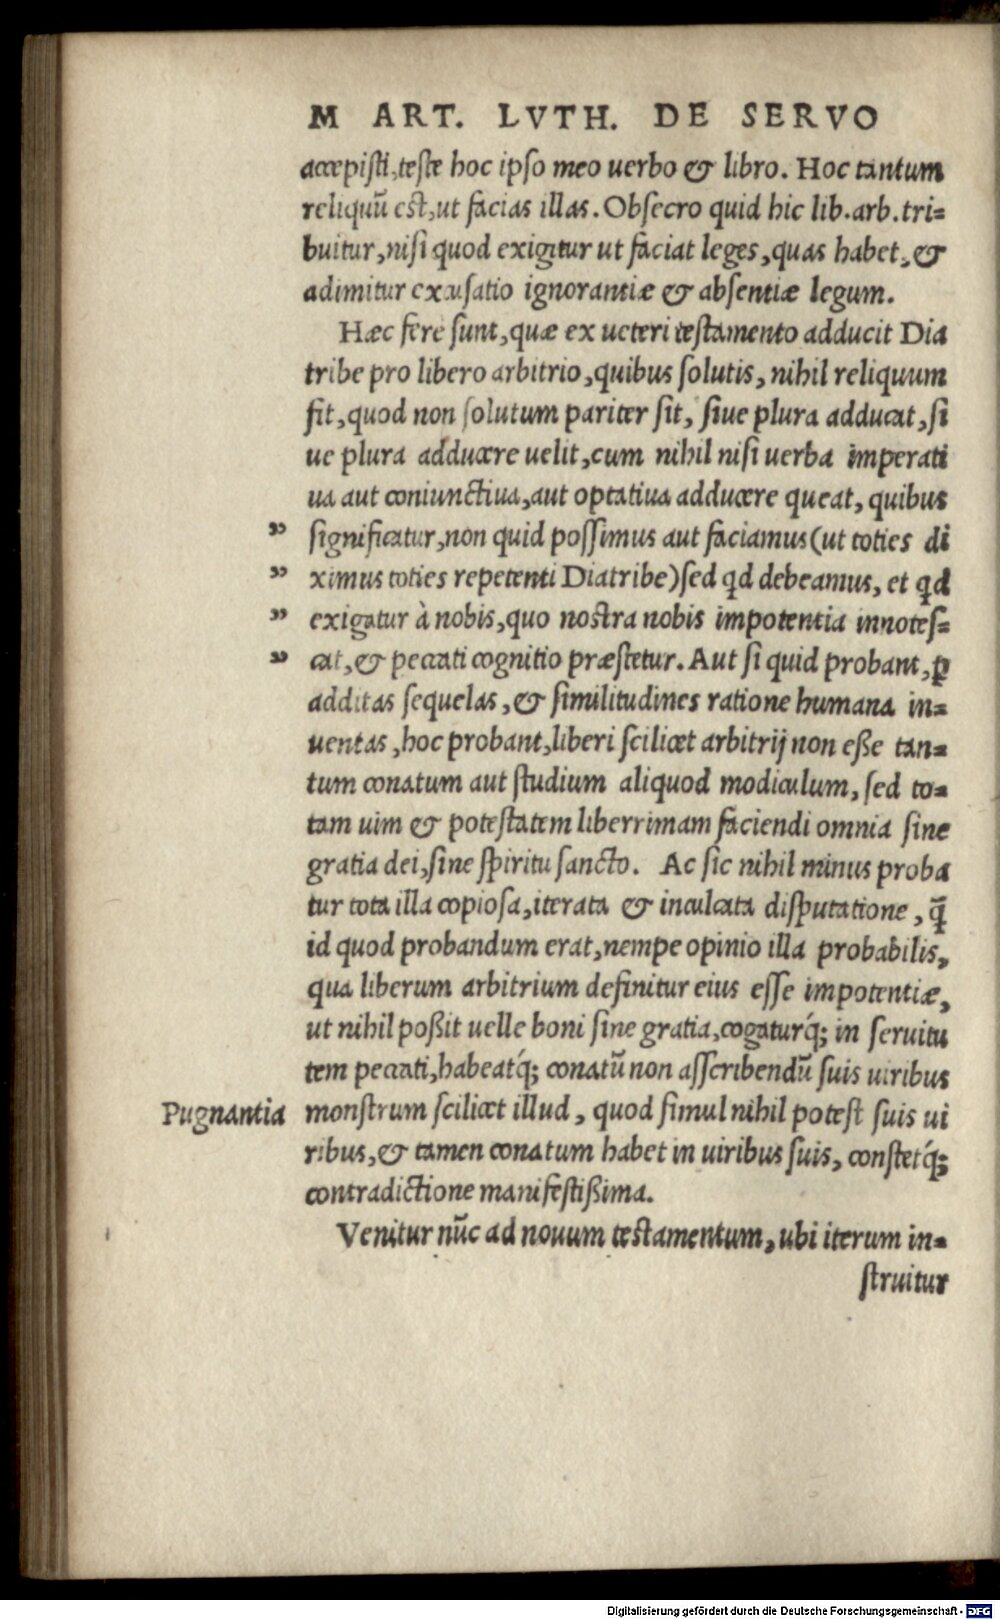 M ART. LVTH. DE SERVO
accepisti, teste hoc ipso meo uerbo & libro. Hoc tantum
reliquũ est, ut facias illas. Obsecro quid hic lib. arb. tri=
buitur, nisi quod exigitur ut faciat leges, quas habet, &
adimitur excusatio ignorantiæ & absentiæ legum.
Hæc fere sunt, quæ ex ueteri testamento adducit Dia
tribe pro libero arbitrio, quibus solutis, nihil reliquum
fit, quod non solutum pariter sit, siue plura adducat, si
ue plura adducere uelit, cum nihil nisi uerba imperati
ua aut coniunctiua, aut optatiua adducere queat, quibus
" significatur, non quid possimus aut faciamus (ut toties di
" ximus toties repetenti Diatribe) sed qd debeamus, et qd
" exigatur à nobis, quo nostra nobis impotentia innotes=
" cat, & peccati cognitio præstetur. Aut si quid probant, ꝑ
additas sequelas, & similitudines ratione humana in=
uentas, hoc probant, liberi scilicet arbitrij non eße tan=
tum conatum aut studium aliquod modiculum, sed to=
tam uim & potestatem liberrimam faciendi omnia sine
gratia dei, sine spiritu sancto. Ac sic nihil minus proba
tur tota illa copiosa, iterata & inculcata disputatione, q̃
id quod probandum erat, nempe opinio illa probabilis,
qua liberum arbitrium definitur eius esse impotentiæ,
ut nihil poßit uelle boni sine gratia, cogaturq́; in seruitu
tem peccati, habeatq́; conatũ non asscribendũ suis uiribus
Pugnantia monstrum scilicet illud, quod simul nihil potest suis ui
ribus, & tamen conatum habet in uiribus suis, constetq́;
contradictione manifestißima.
Venitur nũc ad nouum testamentum, ubi iterum in=
struitur
Digitalisierung gefördert durch die Deutsche Forschungsgemeinschaft - DFG